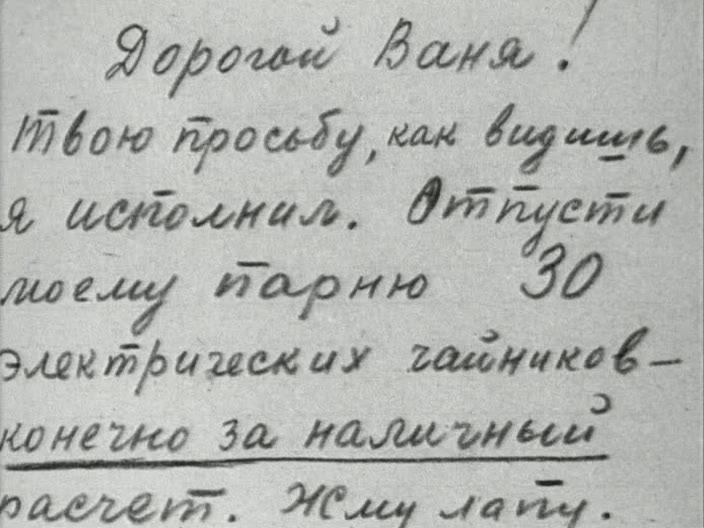 Дорогой Ваня!
Твою просьбу, как видишь,
я исполнил. Отпусти
моему парню 30
электрических чайников—
конечно за наличный
расчет. Жму лапу.